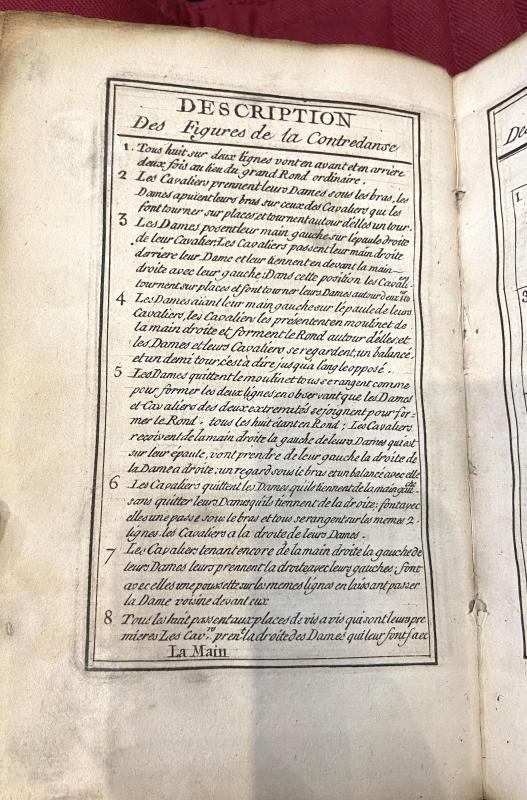 DESCRIPTION
Des Figures de la Contredanse
1. Tous huit sur deux lignes vont en avant et en arriere
deux fois au lieu du grand Rond ordinaire.
2 Les Cavaliers prennent leurs Dames sous les bras, les
Dames apuient leurs bras sur ceux des Cavaliers qui les
font tourner sur places et tournent autour d'elles un tour.
3 Les Dames posent leur main gauche sur l'épaule droite
de leur Cavalier. Les Cavaliers passent leur main droite
derriere leur Dame et leur tiennent en devant la main
droite avec leur gauche: Dans cette position les Cavali-
tournent sur places et font tourner leurs Dames autour d'eux
4 Les Dames aiant leur main gauche sur l'épaule de leurs
Cavaliers, les Cavaliers les présentent en moulinet de
la main droite et forment le Rond autour d'elles et
les Dames et leurs Cavaliers se regardent, un balancé
et un demi tour, c'est à dire jusqu'a l'angle opposé.
5 Les Dames quittent le moulin et tous se rangent comme
pour former les deux lignes, en observant que les Dames
et Cavaliers des deux extremités se joignent pour for-
mer le Rond. tous les huit étant en Rond; Les Cavaliers
recoivent de la main droite la gauche de leurs Dames qui est
sur leur épaule, vont prendre de leur gauche la droite de
la Dame a droite; un regard sous le bras et un balancé avec elle
6 Les Cavaliers quittent les Dames qu'ils tiennent de la main gau-
sans quitter leurs Dames qu'ils tiennent de la droite: font avec
elles une passe sous le bras et tous se rangent sur les memes 2
lignes. les Cavaliers a la droite de leurs Dames.
7 Les Cavaliers tenant encore de la main droite la gauche de
leurs Dames leurs prennent la droite avec leurs gauches; font
avec elles une poussette sur les memes lignes en laissant passer
la Dame voisine devant eux
8 Tous les huit passent aux places de vis a vis qui sont leurs pre
mieres Les Cav.rs pren.t la droite des Dames qui leur font face
La Main
De
1
3